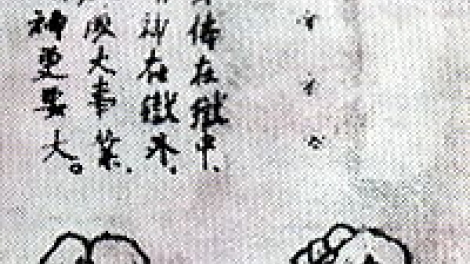 体在獄中，
神在獄外，
成大事業，
神更要大。